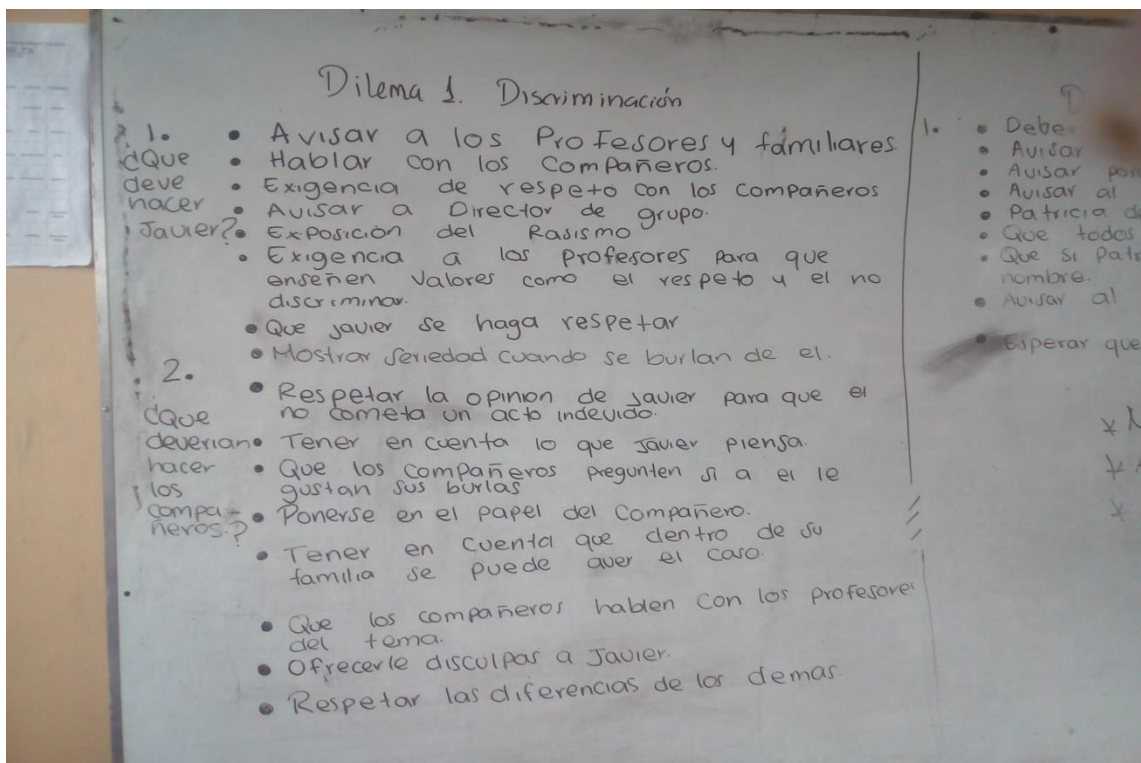 Dilema 1. Discriminación
1.
¿Que
deve
hacer
Javier?
• Avisar a los Profesores y familiares
• Hablar con los Compañeros.
• Exigencia de respeto con los compañeros
• Avisar a Director de grupo.
• Exposición del Rasismo
• Exigencia a los profesores para que
enseñen valores como el respeto y el no
discriminar.
• Que javier se haga respetar
• Mostrar seriedad cuando se burlan de el.
2.
¿Que
deverian
hacer
los
compa-
ñeros.?
• Respetar la opinion de Javier para que el
no cometa un acto indevido.
• Tener en cuenta lo que Javier piensa.
• Que los compañeros pregunten si a el le
gustan sus burlas
• Ponerse en el papel del compañero.
• Tener en cuenta que dentro de su
familia se puede aver el caso.
• Que los compañeros hablen con los profesores
del tema.
• Ofrecerle disculpas a Javier.
• Respetar las diferencias de los demas.
D
1.
• Debe
• Avisar
• Avisar
• Avisar al
• Patricia
• Que todos
• Que si
nombre.
• Avisar al
• Esperar que